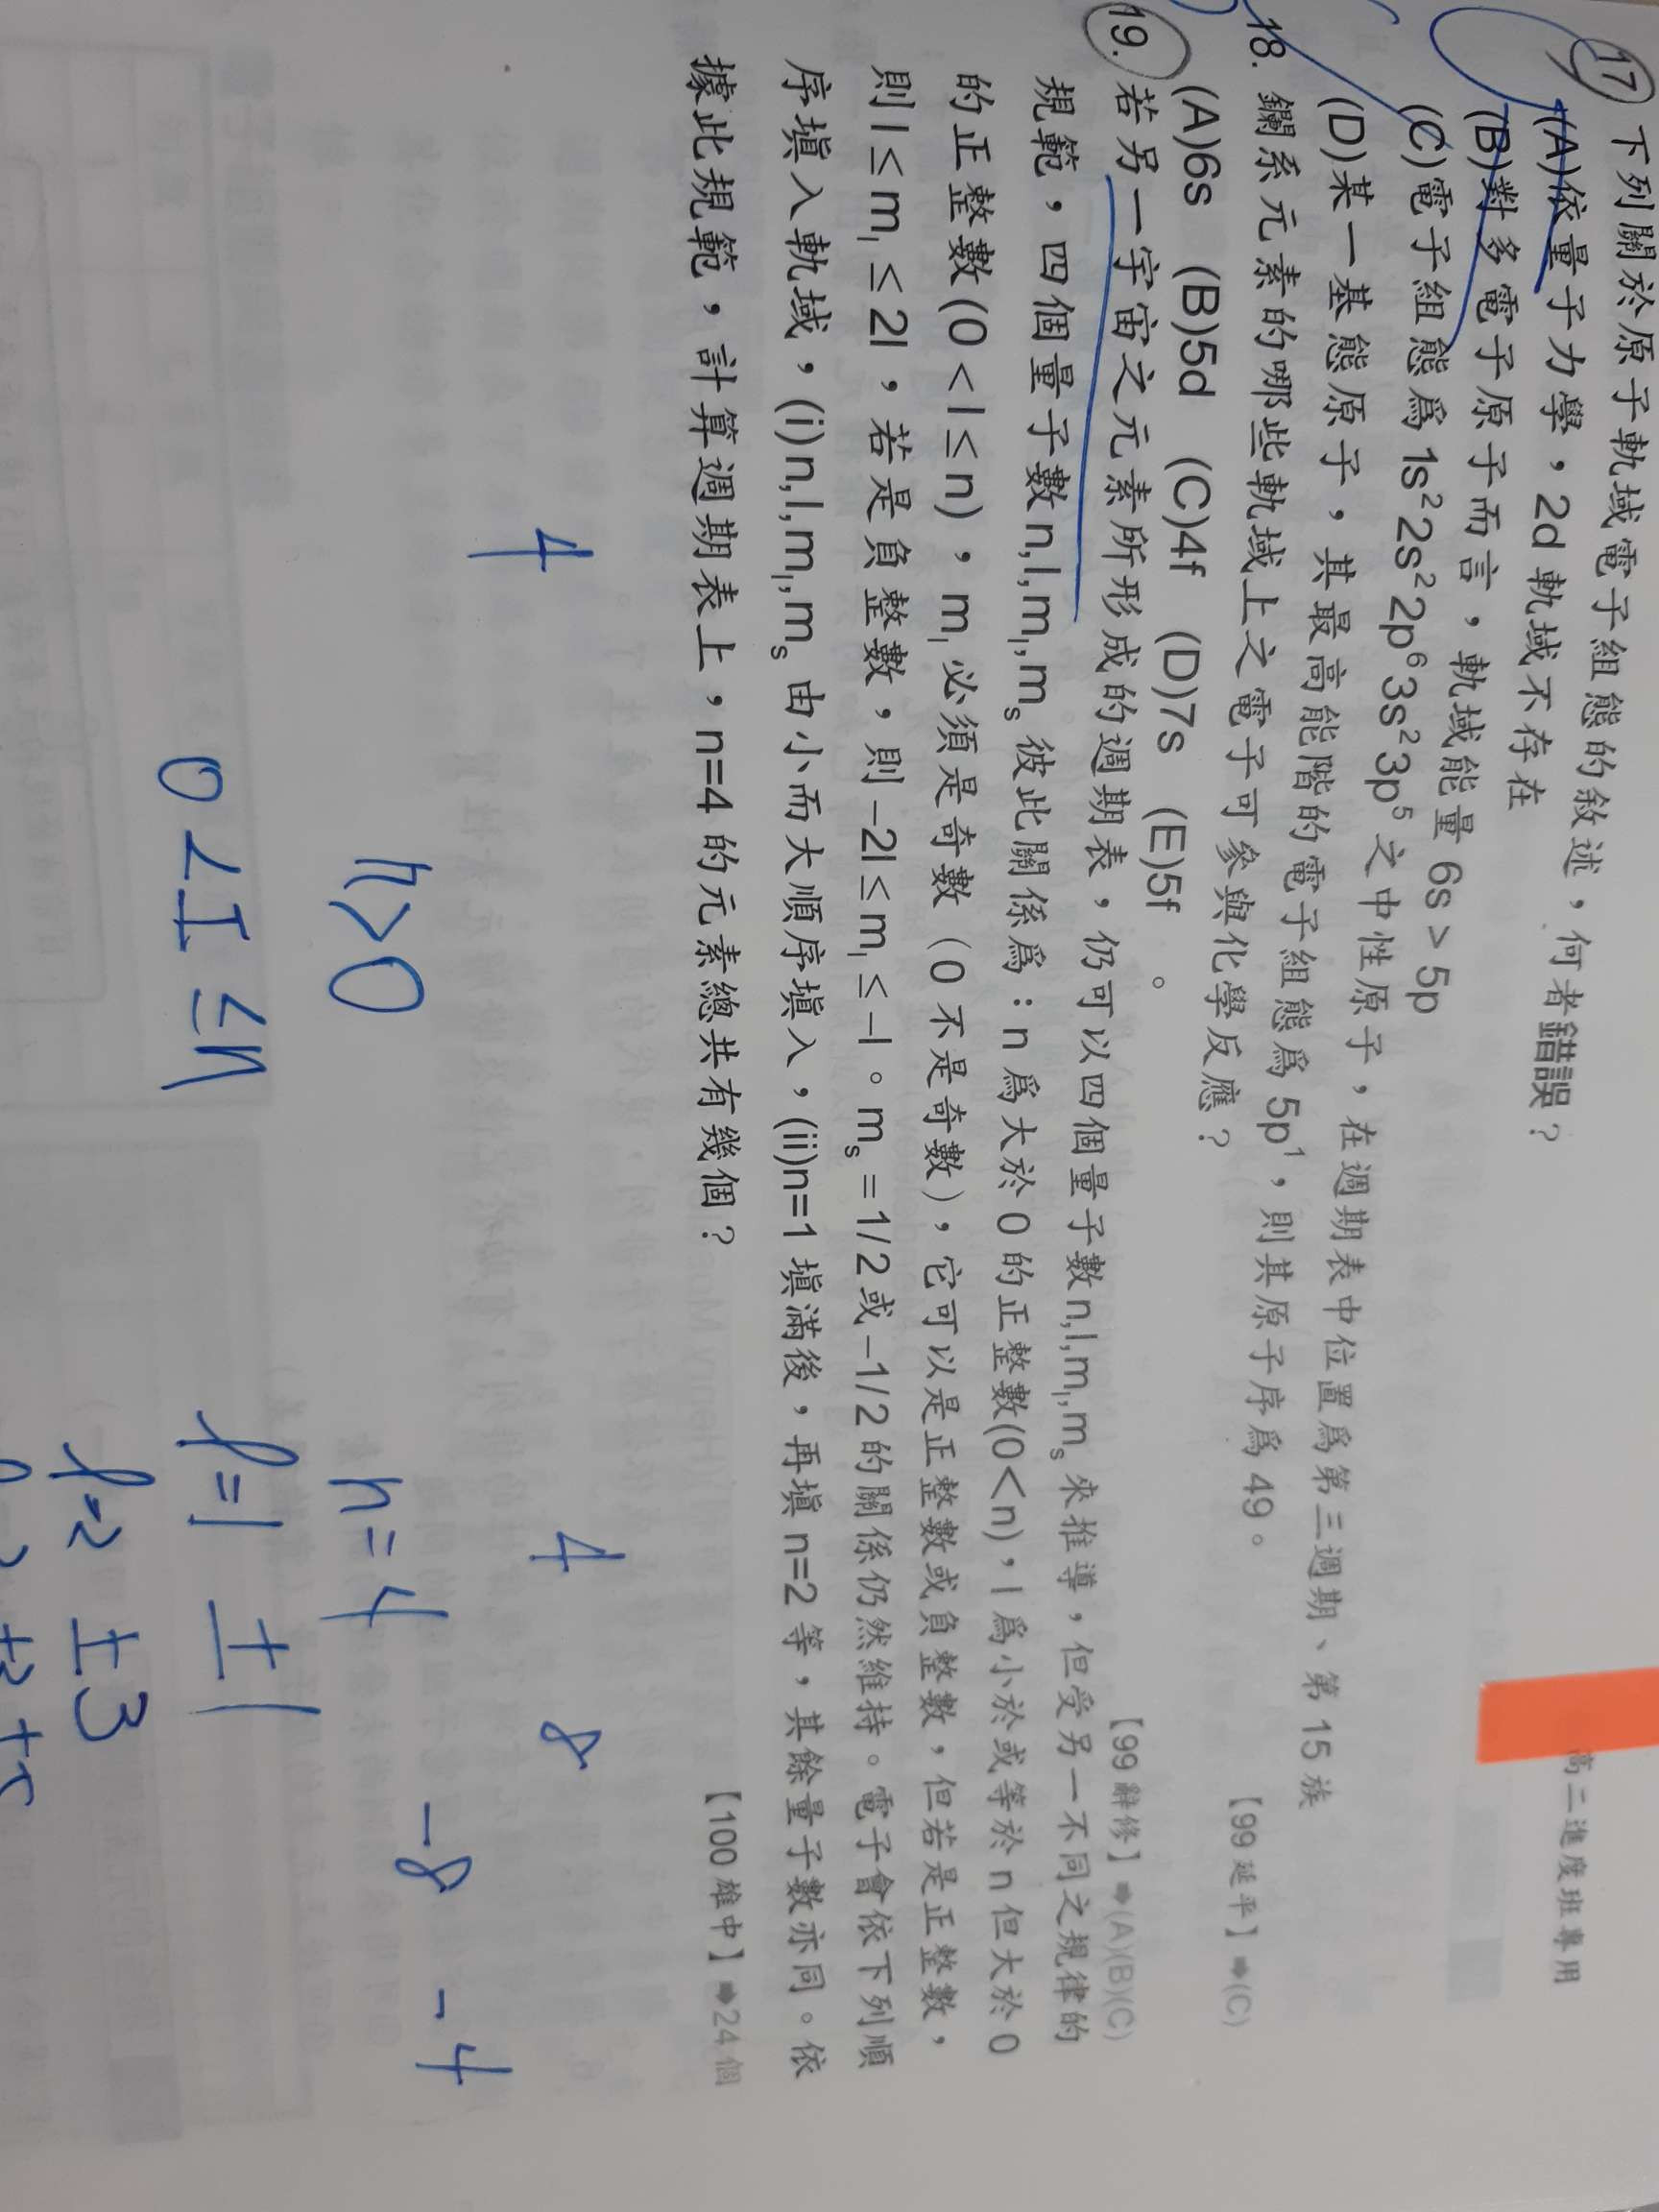 高二進度班專用
17 下列關於原子軌域電子組態的敘述，何者錯誤？
(A)依量子力學，2d 軌域不存在
(B)對多電子原子而言，軌域能量 6s > 5p
(C)電子組態為 1s² 2s² 2p⁶ 3s² 3p⁵ 之中性原子，在週期表中位置為第三週期、第 15 族
(D)某一基態原子，其最高能階的電子組態為 5p¹，則其原子序為 49。
【99 延平】➡(C)
18. 鑭系元素的哪些軌域上之電子可參與化學反應？
(A)6s (B)5d (C)4f (D)7s (E)5f 。
【99 辭修】➡(A)(B)(C)
19. 若另一宇宙之元素所形成的週期表，仍可以四個量子數 n,l,mₗ,mₛ 來推導，但受另一不同之規律的
規範，四個量子數 n,l,mₗ,mₛ 彼此關係為：n 為大於 0 的正整數(0<n)，l 為小於或等於 n 但大於 0
的正整數(0 < l ≤ n)，mₗ 必須是奇數（0 不是奇數），它可以是正整數或負整數，但若是正整數，
則 l ≤ mₗ ≤ 2l，若是負整數，則 −2l ≤ mₗ ≤ −l。mₛ = 1/2 或 −1/2 的關係仍然維持。電子會依下列順
序填入軌域，(i)n,l,mₗ,mₛ 由小而大順序填入，(ii)n=1 填滿後，再填 n=2 等，其餘量子數亦同。依
據此規範，計算週期表上，n=4 的元素總共有幾個？
【100 雄中】➡24 個
4 4 8 -8 -4
n>0 n=4
0<I≤n l=1 ±1
l=2 ±3